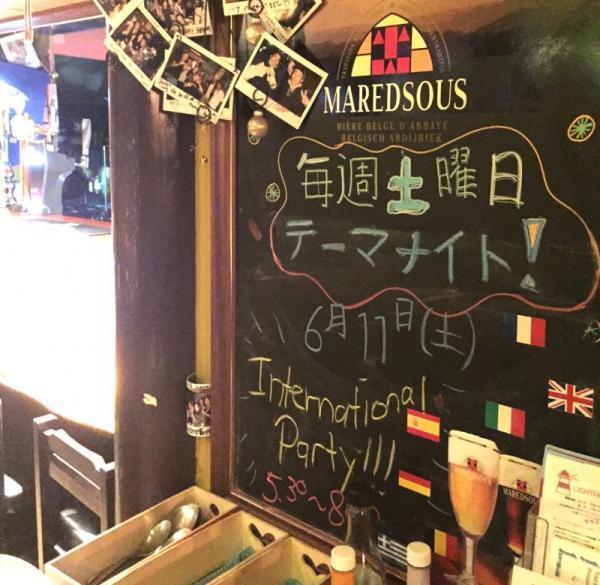 MAREDSOUS
BIÈRE BELGE D'ABBAYE
BELGISCH ABDIJBIER
毎週土曜日
テーマナイト!
6月11日(土)
International
Party!!!
5.30~8
MAREDSOUS